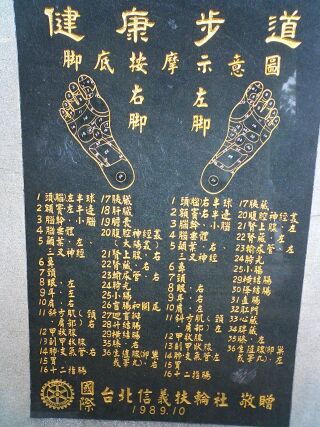 健康步道
脚底按摩示意圖
右脚
左脚
1 頭腦左半球
2 額竇左半邊
3 腦幹、小腦
4 腦垂體
5 顳葉、左、
三叉神經
6 鼻
7 頸
8 眼、左
9 耳、左
10 肩、右
11 斜方肌(頸
肩部)右
12 甲狀腺
13 副甲狀腺
14 肺支氣管右
15 胃
16 十二指腸
17 胰臟
18 肝臟
19 膽囊
20 腹腔神經叢
(太陽叢)
21 腎上腺、右
22 腎臟、右
23 輸尿管、右
24 膀光
25 小腸
26 盲腸和闌尾
27 迴盲瓣
28 升結腸
29 橫結腸
35 膝、右
36 生殖腺(卵巢
或睪丸)、右
1 頭腦右半球
2 額竇右半邊
3 腦幹、小腦
4 腦垂體
5 顳葉、右、
三叉神經
6 鼻
7 頸
8 眼、右
9 耳、右
10 肩、左
11 斜方肌(頸
肩部)左
12 甲狀腺
13 副甲狀腺
14 肺支氣管左
15 胃
16 十二指腸
17 胰臟
20 腹腔神經叢
21 腎上腺、左
22 腎臟、左
23 輸尿管、左
24 膀光
25 小腸
29 橫結腸
30 降結腸
31 直腸
32 肛門
33 心臟
34 脾臟
35 膝、左
36 生殖腺(卵巢
或睪丸)、左
國際台北信義扶輪社 敬贈
1989.10